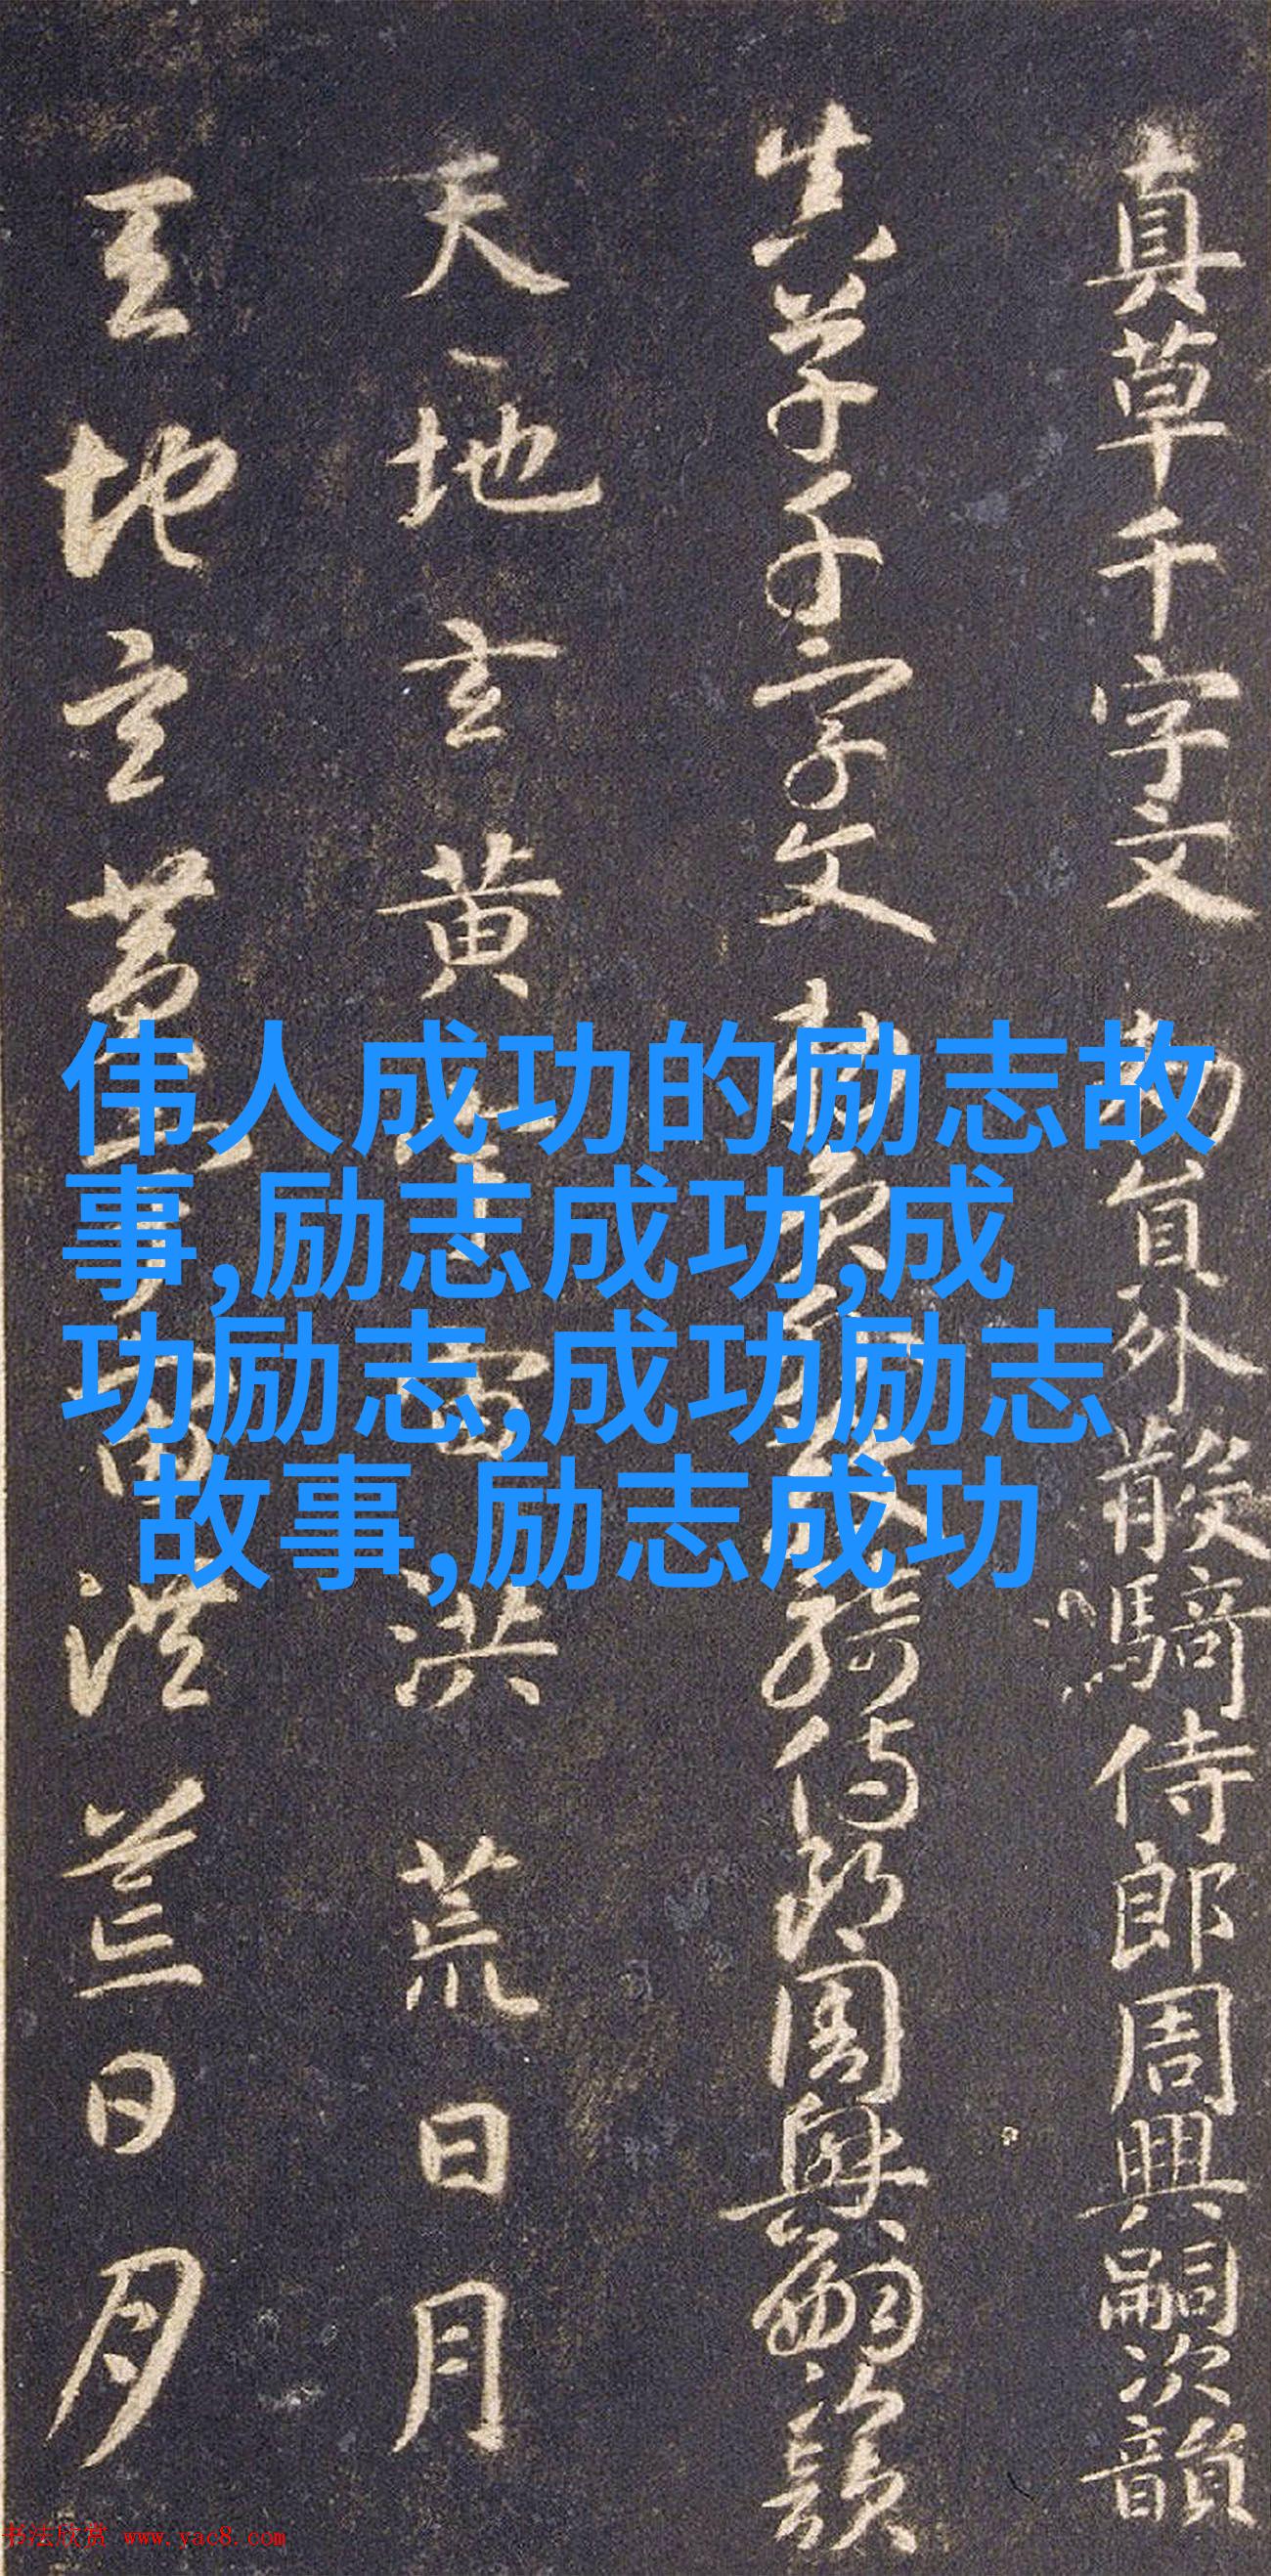 真草千字文 勑員外散騎侍郎周興嗣次韻
真草千字文 勑員外散騎侍郎周興嗣次韻
天地玄黄宇宙洪荒日月
天地玄黄宇宙洪荒日月
伟人成功的励志故
事,励志成功,成
功励志,成功励志
故事,励志成功
书法欣赏 www.yac8.com